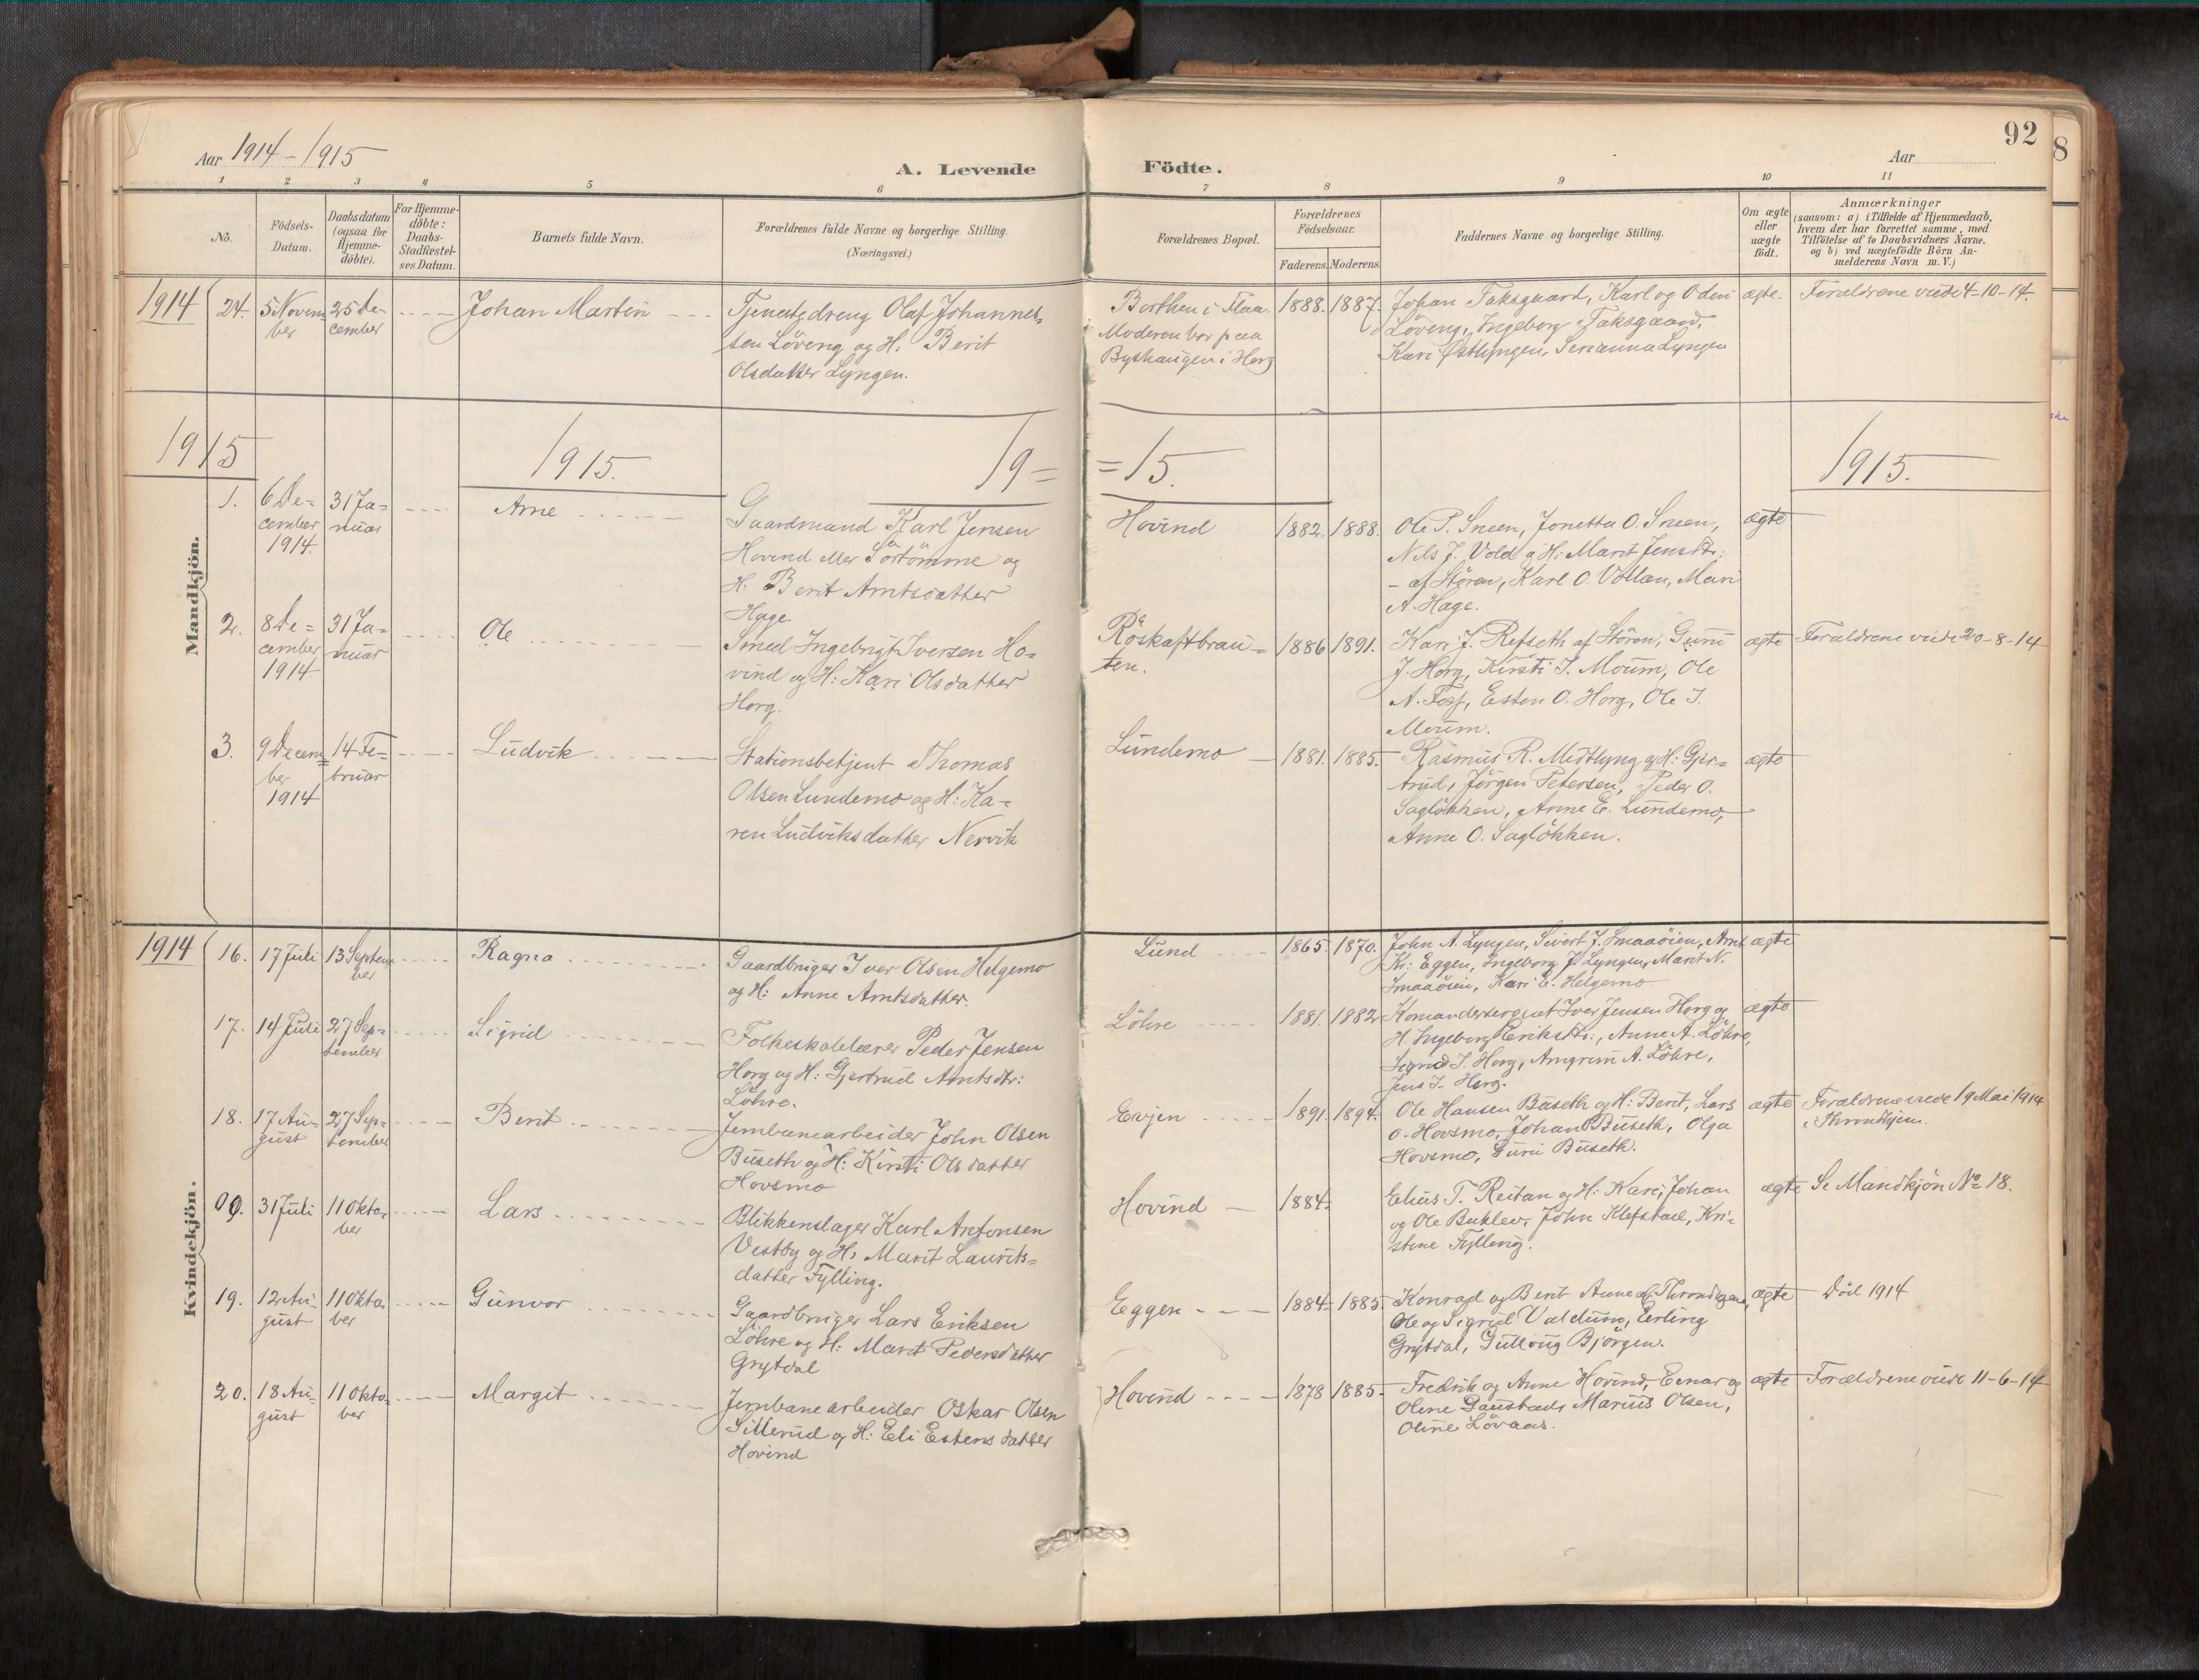 92
8
Aar 1914-1915
A. Levende
Födte.
Aar
1 2 3 4 5 6 7 8 9 10 11
No.
Födsels-
Datum.
Daabsdatum
(ogsaa for
Hjemme-
döbte).
For Hjemme-
döbte:
Daabs-
Stadfæstel-
ses Datum.
Barnets fulde Navn.
Forældrenes fulde Navne og borgerlige Stilling.
(Næringsvei.)
Forældrenes Bopæl.
Forældrenes
Födselsaar.
Faderens. Moderens.
Faddernes Navne og borgerlige Stilling.
Om ægte
eller
uægte
födt.
Anmærkninger
(saasom: a) i Tilfælde af Hjemmedaab,
hvem der har forrettet samme, med
Tilföielse af to Daabsvidners Navne.
og b) ved uægtefödte Börn An-
melderens Navn m. V.)
1914
24.
5 Novem
ber
25 De-
cember
Johan Martin
Tjenestedreng Olaf Johannes-
sen Löveng og H: Berit
Olsdatter Lyngen.
Borthen i Flaa.
Moderen bor paa
Byshaugen i Horg
1888. 1887.
Johan Foksgaard, Karl og Odin
Löveng, Ingeborg Foksgaard,
Kari Østlyngen, Serianna Lyngen
ægte.
Forældrene viede 4-10-14.
1915
1915.
19=
=15.
1915.
Mandkjön.
1.
6 De-
cember
1914.
31 Ja-
nuar
Arne
Gaardmand Karl Jensen
Hovind eller Sörtömme og
H: Berit Arntsdatter
Hage
Hovind
1882. 1888.
Ole P. Sneen, Jonetta O. Sneen,
Nils J. Vold og H: Marit Jensdtr:
- af Stören, Karl O. Vollan, Mari
A. Hage.
ægte
2.
8 De-
cember
1914
31 Ja-
nuar
Ole
Smed Ingebrigt Iversen Ho-
vind og H: Kari Olsdatter
Horg.
Röskaftbrau-
ten.
1886 1891.
Kari J. Refseth af Stören, Guru
J. Horg, Kirsti I. Moum, Ole
A. Foss, Esten O. Horg, Ole I.
Moum.
ægte
Forældrene viede 20-8-14
3.
9 Decem
ber
1914
14 Fe-
bruar
Ludvik
Stationsbetjent Thomas
Olsen Lundemo og H: Ka-
ren Ludviksdatter Nervik
Lundemo
1881. 1885.
Rasmus R. Midtlyng og H: Gjer-
trud, Jörgen Petersen, Peder O.
Saglökken, Anne E. Lundemo,
Anne O. Saglökken.
ægte
1914
Kvindekjön.
16.
17 Juli
13 Septem
ber
Ragna
Gaardbruger Iver Olsen Helgemo
og H: Anne Arntsdatter.
Lund
1865. 1870.
John A. Lyngen, Sivert J. Smaaöien, Arnt
Kr: Eggen, Ingeborg J. Lyngen, Marit N.
Smaaöien, Kari E. Helgemo
ægte
17.
14 Juli
27 Sep-
tember
Sigrid
Folkeskolelærer Peder Jensen
Horg og H: Gjertrud Arntsdtr:
Löhre.
Löhre
1881. 1882
Komandersergeat Iver Jensen Horg og
H. Ingeborg Eriksdtr:, Anne A. Löhre,
Sigrid I. Horg, Arngrim A. Löhre,
Jens I. Horg.
ægte
18.
17 Au-
gust
27 Sep-
tember
Berit
Jernbanearbeider John Olsen
Buseth og H: Kirsti Olsdatter
Hovsmo
Evjen
1891. 1894.
Ole Hansen Buseth og H: Berit, Lars
O. Hovsmo, Johan Buseth, Olga
Hovsmo, Guri Buseth.
ægte
Forældrene viede 19 Mai 1914
i Throndhjem.
00.
31 Juli
11 Okto-
ber
Lars
Blikkenslager Karl Antonsen
Vestby og H: Marit Laurits-
datter Fylling.
Hovind
1884.
Elius T. Reitan og H: Kari, Johan
og Ole Buklev, John Klefstad, Kri-
stine Fylling.
ægte
Se Mandkjön No 18.
19.
12 Au-
gust
11 Okto
ber
Gunvor
Gaardbruger Lars Eriksen
Löhre og H: Marit Pedersdatter
Grytdal
Eggen
1884. 1885.
Konrad og Berit Anne af Throndhjem,
Ole og Sigrid Valdum, Erling
Grytdal, Gullaug Bjørgen.
ægte
Död 1914
20.
18 Au-
gust
11 Okto-
ber
Margit
Jernbanearbeider Oskar Olsen
Sillerud og H: Eli Estensdatter
Hovind
Hovind
1878 1885.
Fredrik og Anne Hovind, Einar og
Oline Gaustad, Marius Olsen,
Oline Lövaas.
ægte
Forældrene viede 11-6-14